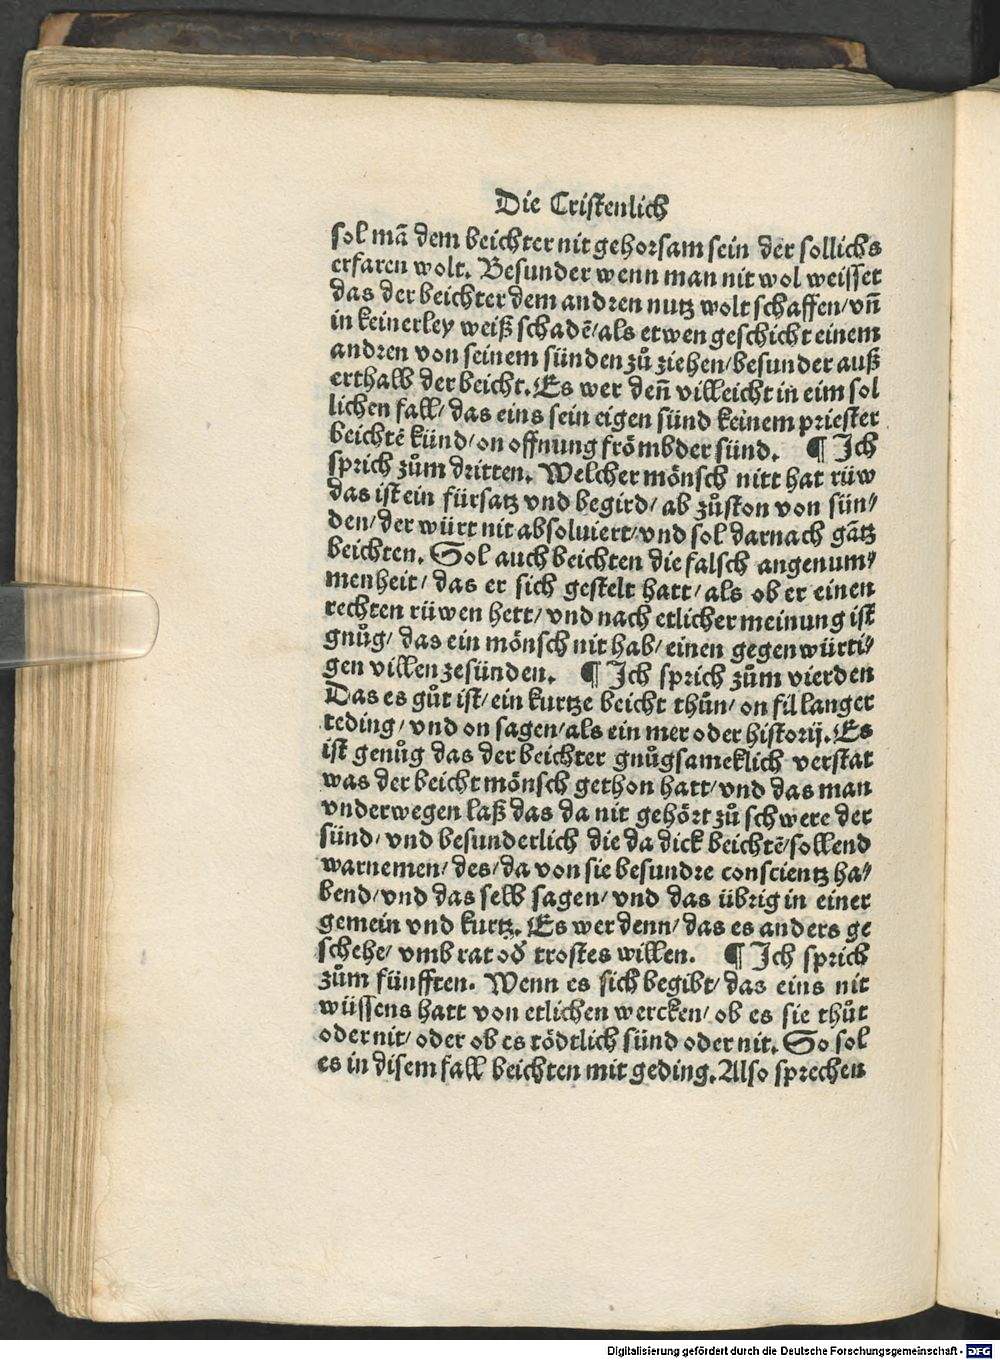 Die Cristenlich
sol mã dem beichter nit gehorsam sein der sollichs
erfaren wolt. Besunder wenn man nit wol weisset
das der beichter dem andren nutz wolt schaffen/ vñ
in keinerley weiß schadẽ/ als etwen geschicht einem
andren von seinem sünden zů ziehen/ besunder auß
erthalb der beicht. Es wer deñ villeicht in eim sol
lichen fall/ das eins sein eigen sünd keinem priester
beichtẽ künd/ on offnung frömbder sünd. ¶ Ich
sprich zům dritten. Welcher mönsch nitt hat rüw
das ist ein fürsatz vnd begird/ ab zůston von sün⸗
den/ der würt nit absoluiert/ vnd sol darnach gãtz
beichten. Sol auch beichten die falsch angenum⸗
menheit/ das er sich gestelt hatt/ als ob er einen
rechten rüwen hett/ vnd nach etlicher meinung ist
gnůg/ das ein mönsch nit hab/ einen gegenwürti⸗
gen villen zesünden. ¶ Ich sprich zům vierden
Das es gůt ist/ ein kurtze beicht thůn/ on fil langer
teding/ vnd on sagen/ als ein mer oder historij. Es
ist genůg das der beichter gnůgsameklich verstat
was der beicht mönsch gethon hatt/ vnd das man
vnderwegen laß das da nit gehört zů schwere der
sünd/ vnd besunderlich die da dick beichtẽ/ sollend
warnemen/ des/ da von sie besundre conscientz ha⸗
bend/ vnd das selb sagen/ vnd das übrig in einer
gemein vnd kurtz. Es wer denn/ das es anders ge
schehe/ vmb rat oð trostes willen. ¶ Ich sprich
zům fünfften. Wenn es sich begibt/ das eins nit
wüssens hatt von etlichen wercken/ ob es sie thůt
oder nit/ oder ob es tödtlich sünd oder nit. So sol
es in disem fall beichten mit geding. Also sprechen
Digitalisierung gefördert durch die Deutsche Forschungsgemeinschaft - DFG